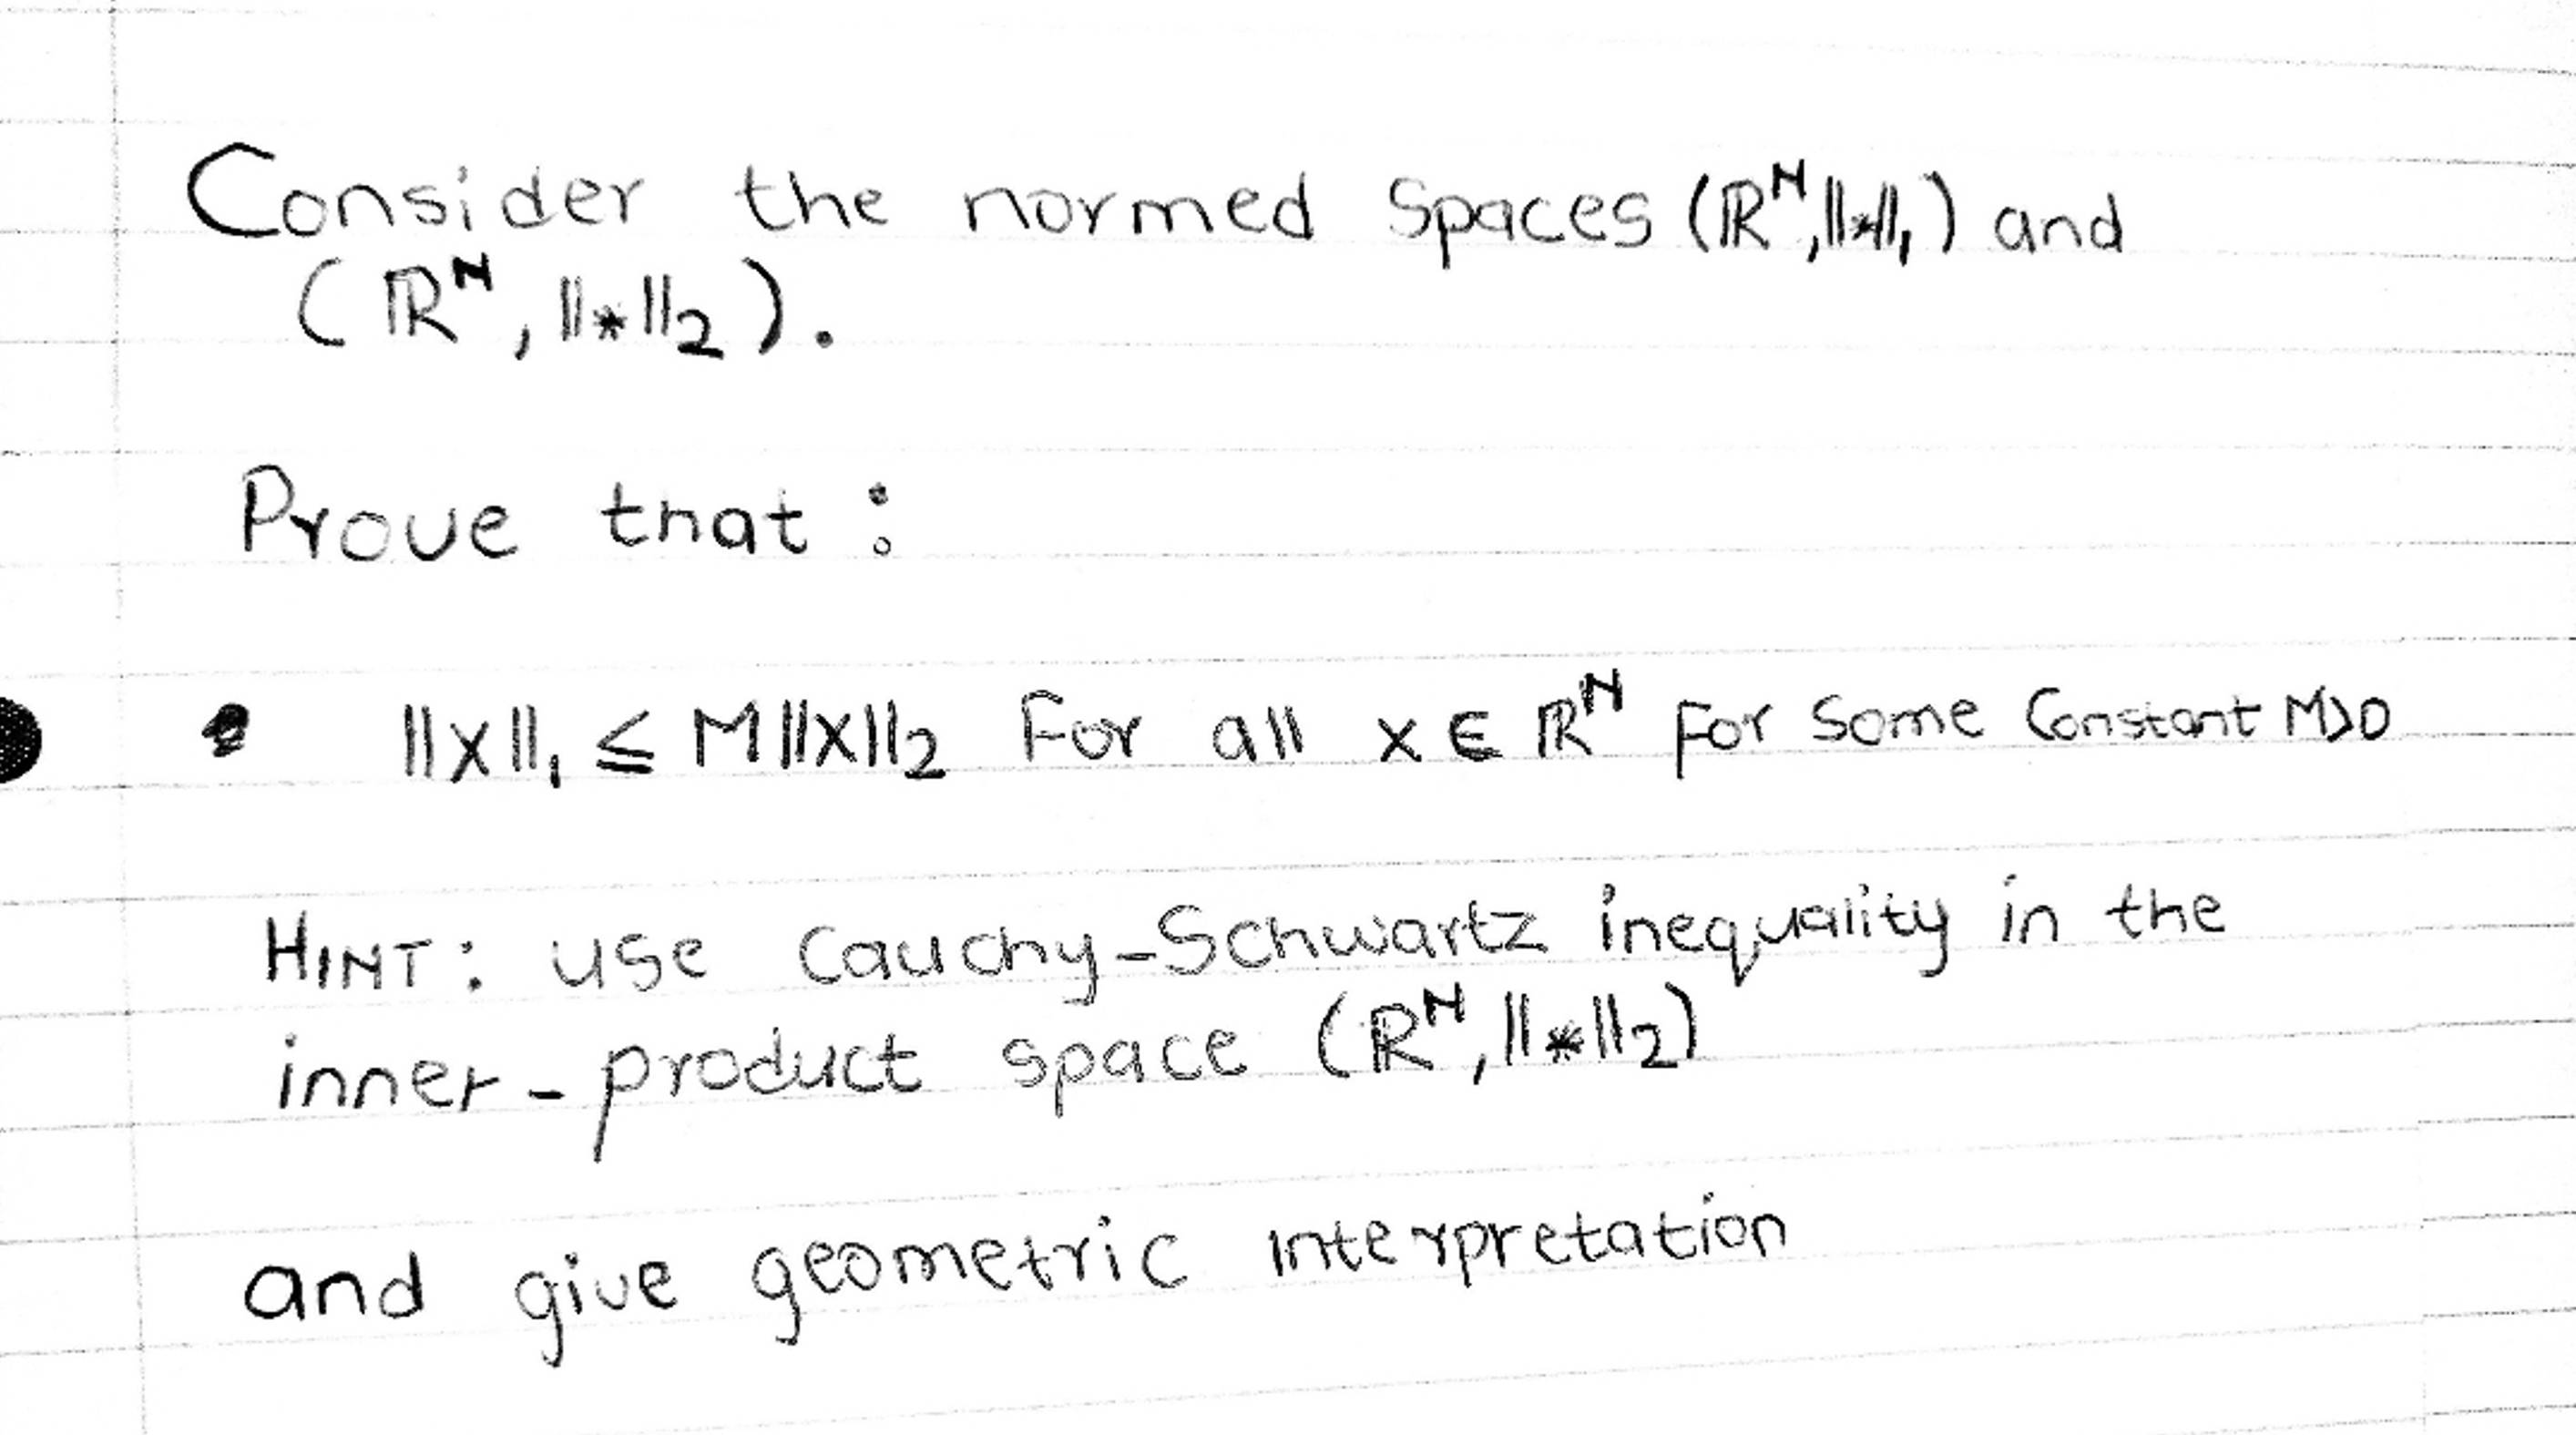 Consider the normed Spaces (ℝᴺ,||*||₁) and
(ℝᴺ, ||*||₂).
Prove that :
• ||x||₁ ≤ M||x||₂ For all x ∈ ℝᴺ For Some Constant M>0
HINT: use Cauchy-Schwartz inequality in the
inner-product space (ℝᴺ,||*||₂)
and give geometric interpretation